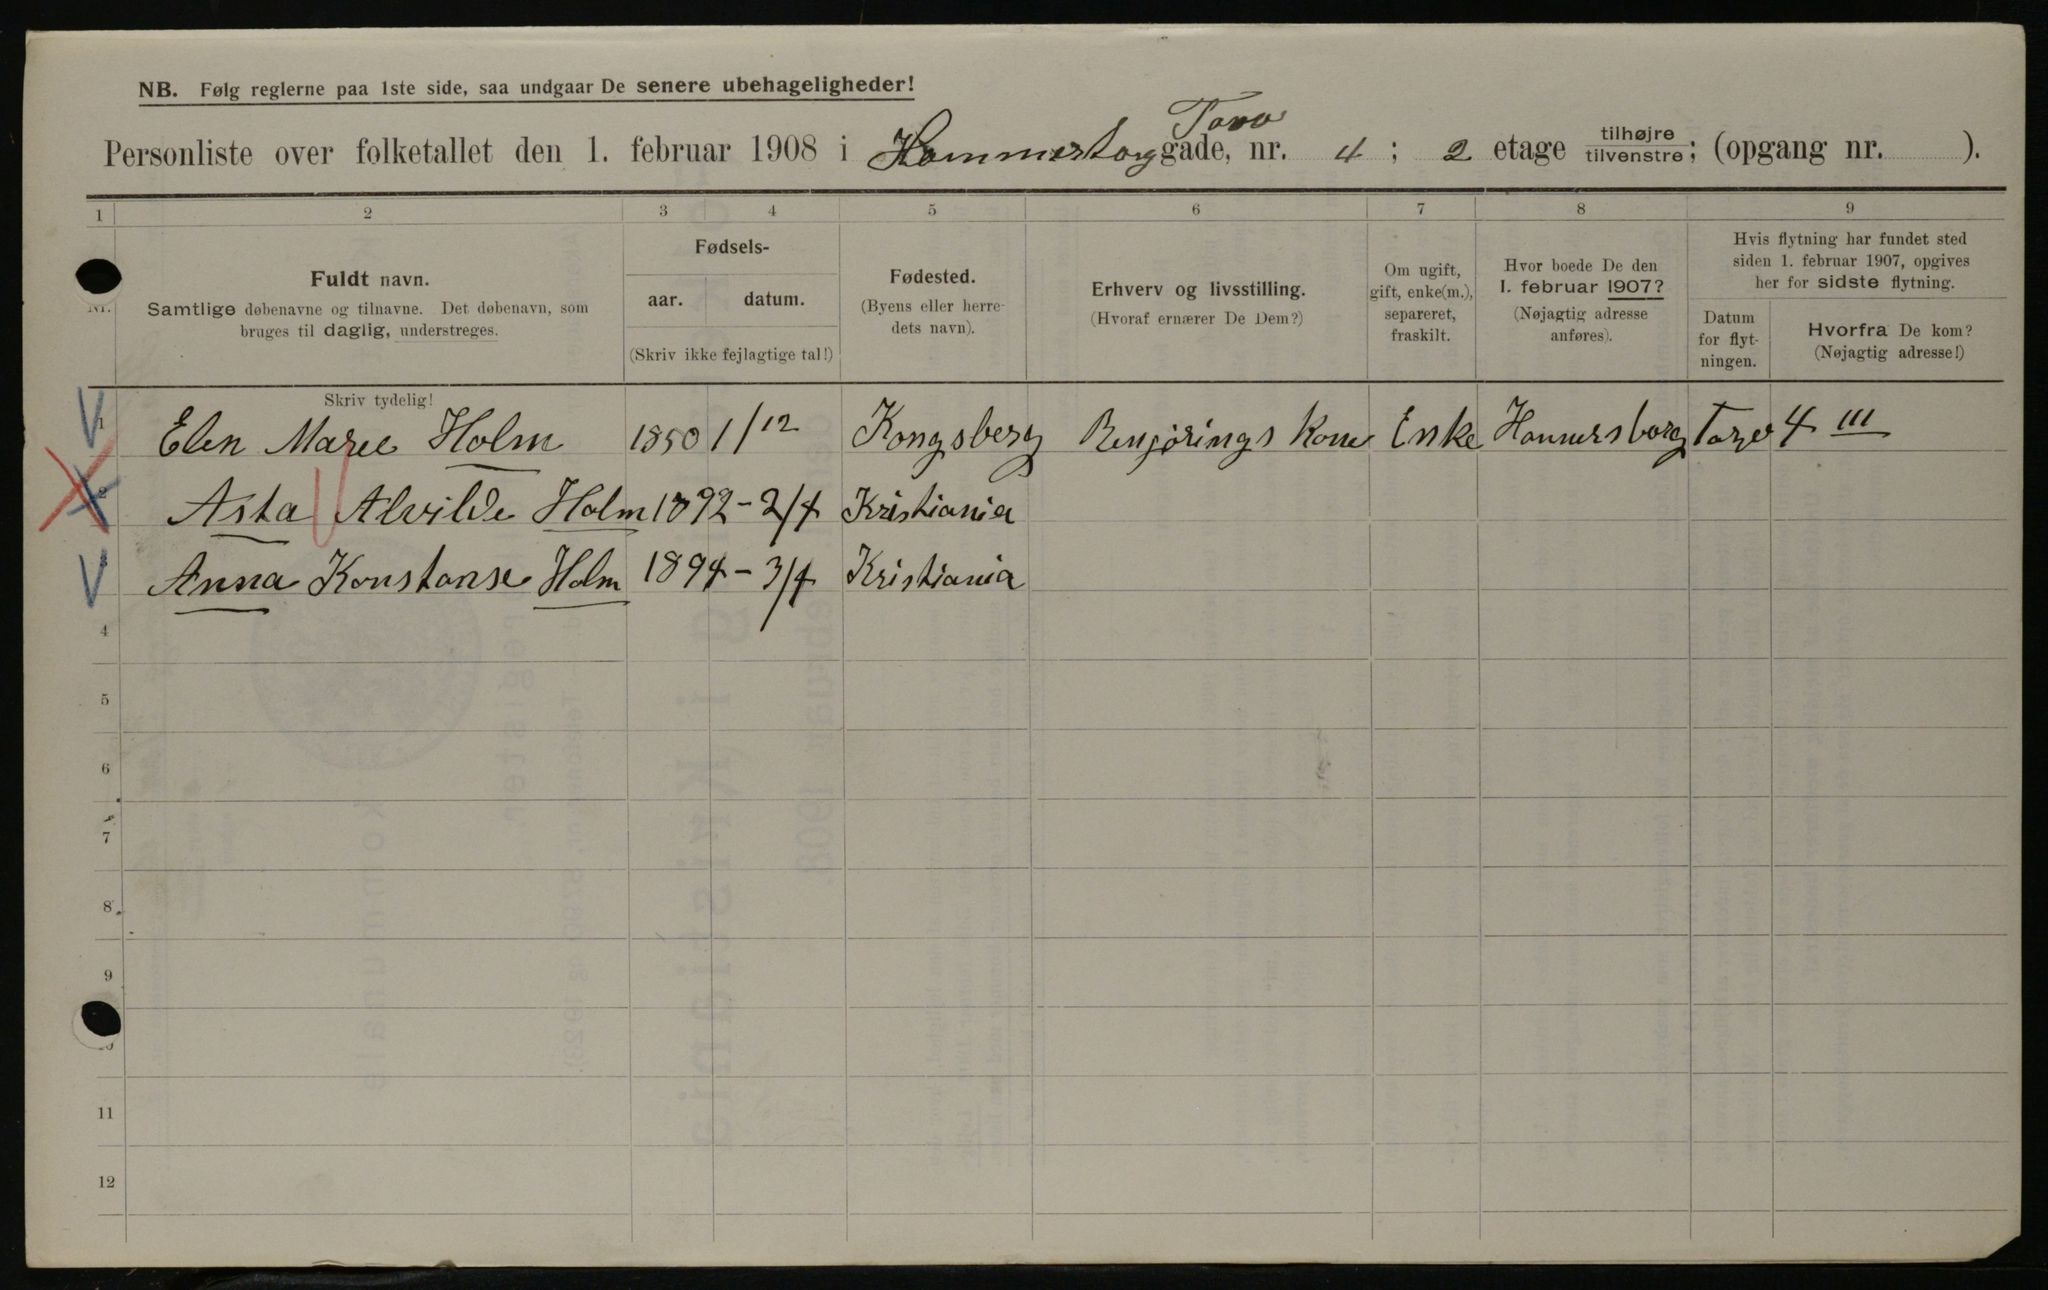 NB. Følg reglerne paa 1ste side, saa undgaar De senere ubehageligheder!
Personliste over folketallet den 1. februar 1908 i Hammerstorggade, nr. 4; 2 etage tilhøjre/tilvenstre; (opgang nr. ).
1 2 3 4 5 6 7 8 9
Nr.
Fuldt navn.
Samtlige døbenavne og tilnavne. Det døbenavn, som
bruges til daglig, understreges.
Skriv tydelig!
Fødsels-
aar. datum.
(Skriv ikke fejlagtige tal!)
Fødested.
(Byens eller herre-
dets navn).
Erhverv og livsstilling.
(Hvoraf ernærer De Dem?)
Om ugift,
gift, enke(m.),
separeret,
fraskilt.
Hvor boede De den
1. februar 1907?
(Nøjagtig adresse
anføres).
Hvis flytning har fundet sted
siden 1. februar 1907, opgives
her for sidste flytning.
Datum
for flyt-
ningen.
Hvorfra De kom?
(Nøjagtig adresse!)
1 Elen Maree Holm 1850 1/12 Kongsberg Renjørings Kone Enke Hamersborg Torve 4 III
2 Asta Alvilde Holm 1892 - 2/4 Kristiania
3 Anna Konstanse Holm 1894 - 3/4 Kristiania
4
5
6
7
8
9
11
12